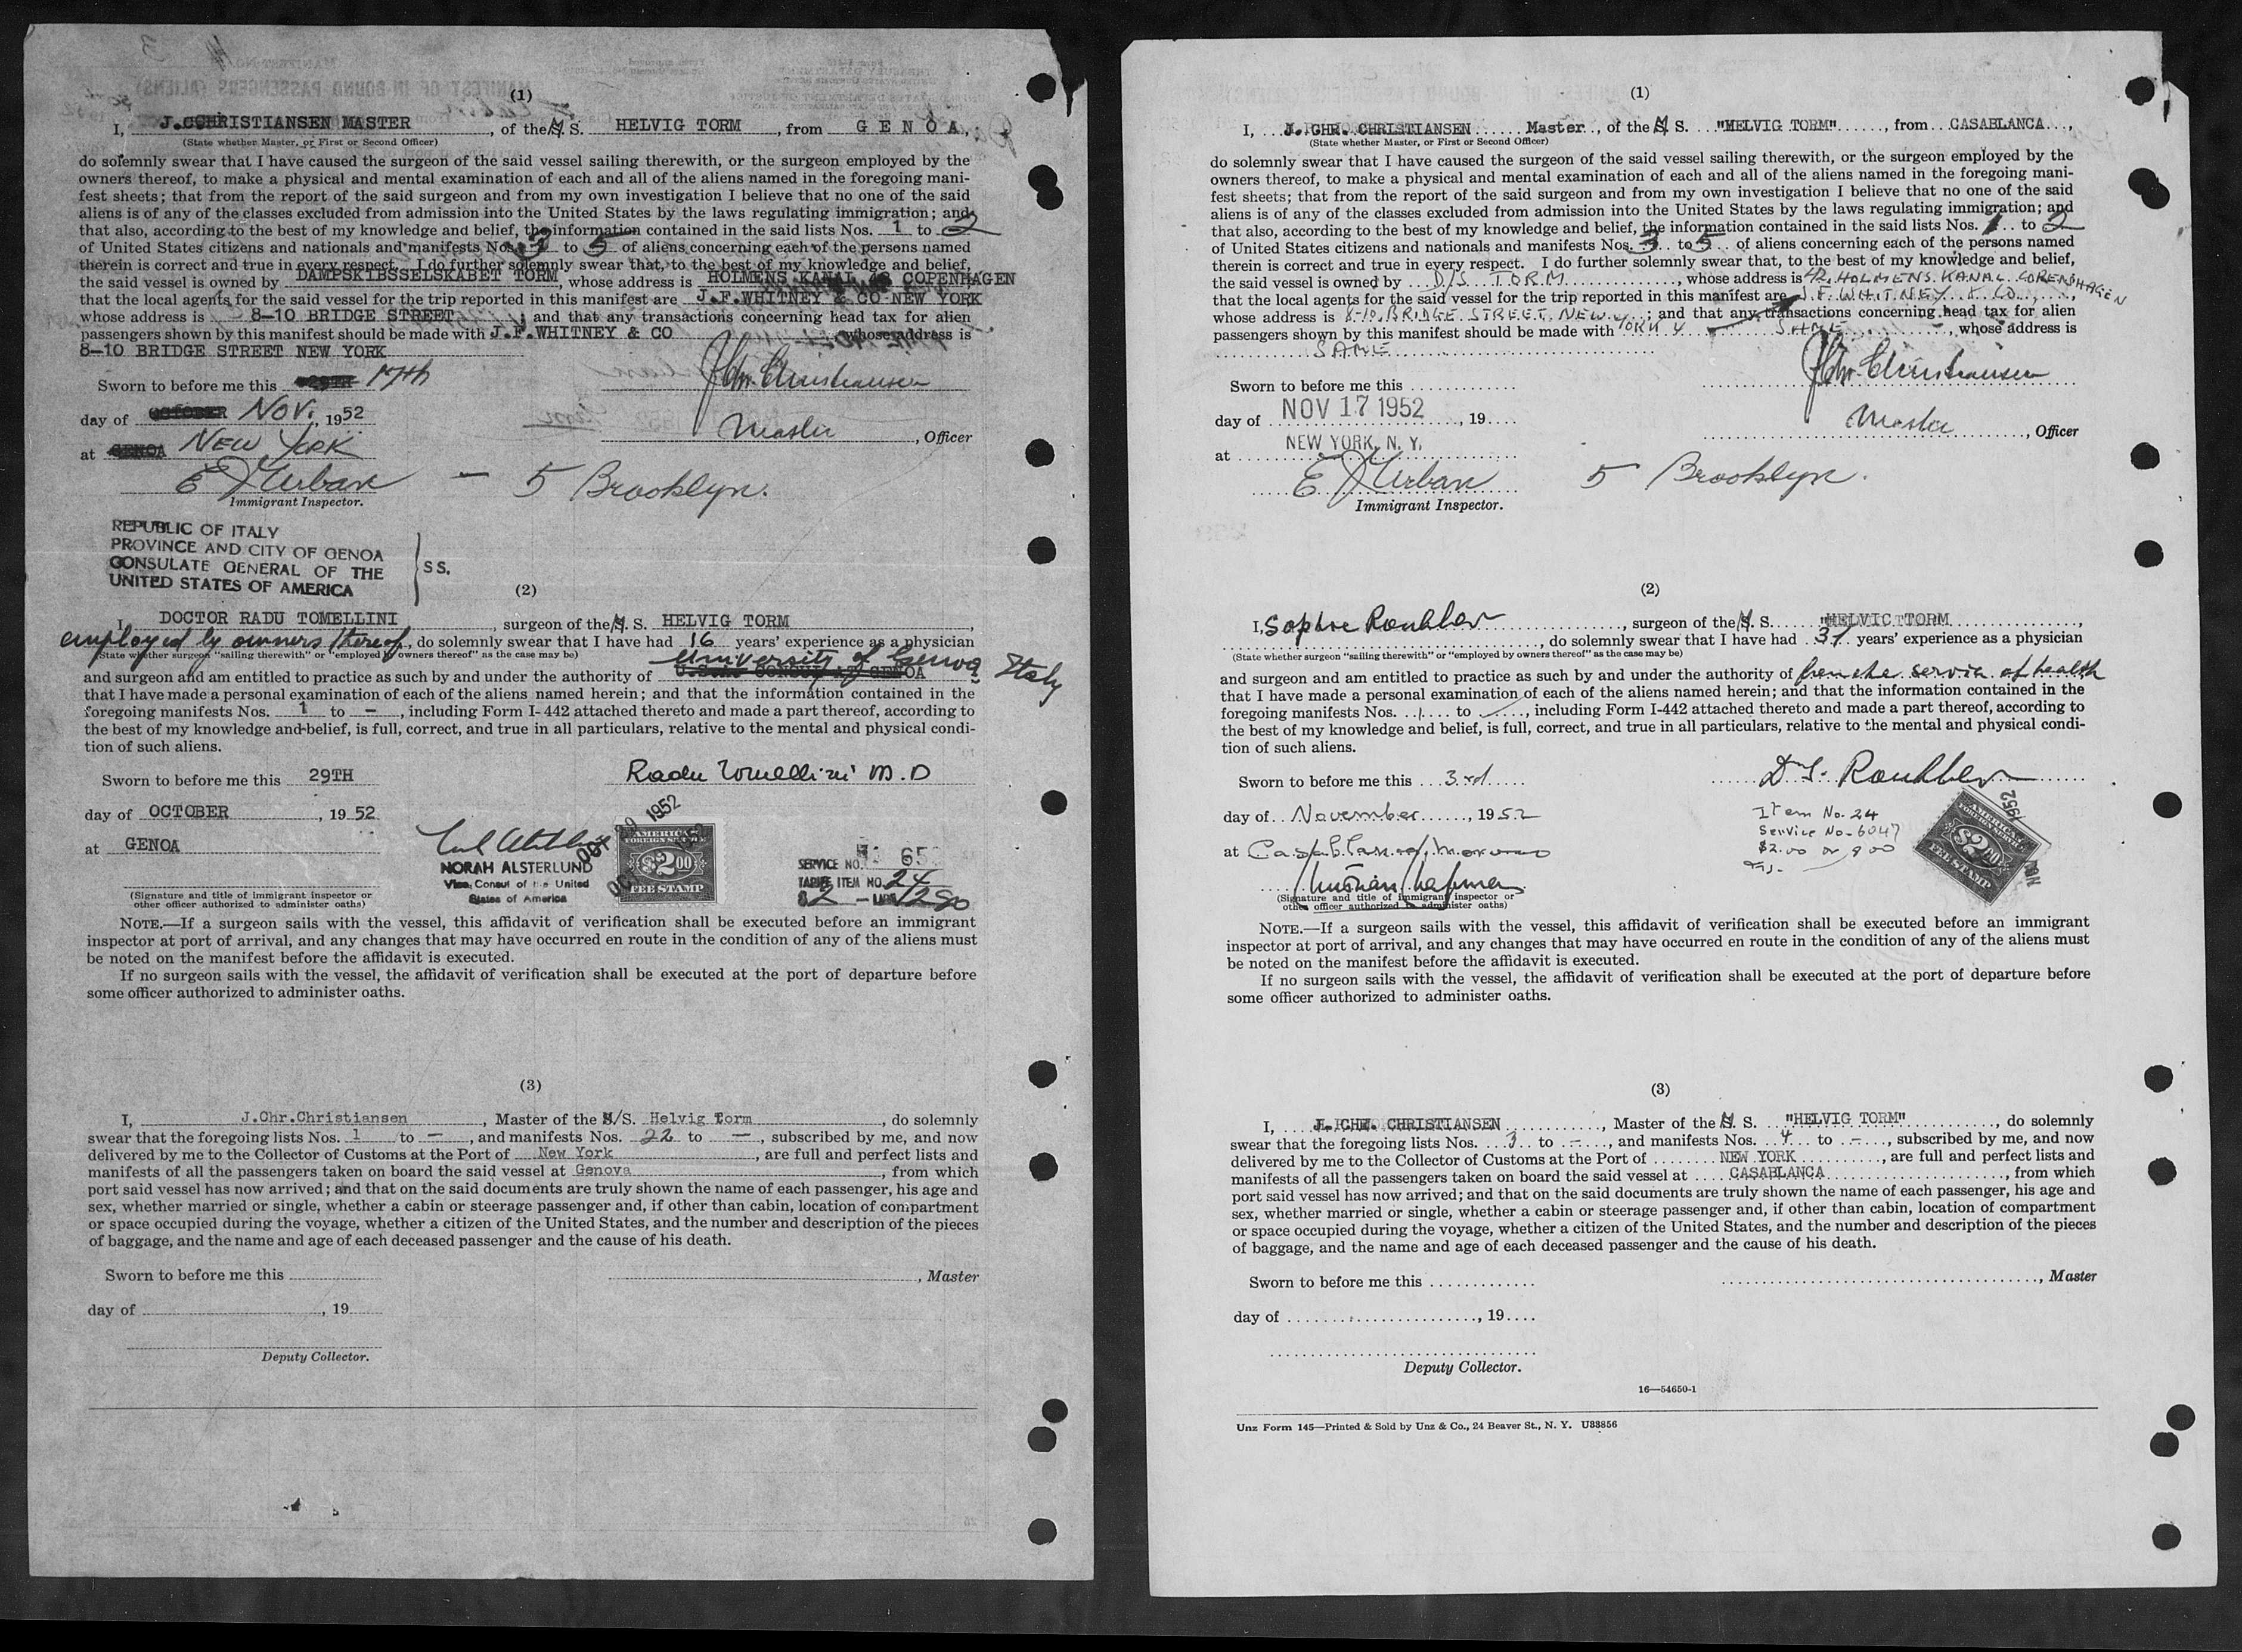 (1)
I, J. CHRISTIANSEN MASTER, of the M. S. HELVIG TORM, from GENOA,
(State whether Master, or First or Second Officer)
do solemnly swear that I have caused the surgeon of the said vessel sailing therewith, or the surgeon employed by the
owners thereof, to make a physical and mental examination of each and all of the aliens named in the foregoing mani-
fest sheets; that from the report of the said surgeon and from my own investigation I believe that no one of the said
aliens is of any of the classes excluded from admission into the United States by the laws regulating immigration; and
that also, according to the best of my knowledge and belief, the information contained in the said lists Nos. 1 to 2
of United States citizens and nationals and manifests Nos. 3 to 5 of aliens concerning each of the persons named
therein is correct and true in every respect. I do further solemnly swear that, to the best of my knowledge and belief,
the said vessel is owned by DAMPSKIBSSELSKABET TORM, whose address is HOLMENS KANAL 42 COPENHAGEN
that the local agents for the said vessel for the trip reported in this manifest are J.F.WHITNEY & CO NEW YORK
whose address is 8-10 BRIDGE STREET; and that any transactions concerning head tax for alien
passengers shown by this manifest should be made with J.F.WHITNEY & CO whose address is
8-10 BRIDGE STREET NEW YORK
Sworn to before me this 17th
J Chr. Christiansen
day of OCTOBER NOV. 1952
Master, Officer
at GENOA NEW YORK
E J Urban — 5 Brooklyn.
Immigrant Inspector.
REPUBLIC OF ITALY
PROVINCE AND CITY OF GENOA
CONSULATE GENERAL OF THE
UNITED STATES OF AMERICA
SS.
(2)
I, DOCTOR RADU TOMELLINI, surgeon of the M. S. HELVIG TORM,
employed by owners thereof, do solemnly swear that I have had 16 years' experience as a physician
(State whether surgeon "sailing therewith" or "employed by owners thereof" as the case may be)
University of Genoa Italy
and surgeon and am entitled to practice as such by and under the authority of
that I have made a personal examination of each of the aliens named herein; and that the information contained in the
foregoing manifests Nos. 1 to —, including Form I-442 attached thereto and made a part thereof, according to
the best of my knowledge and belief, is full, correct, and true in all particulars, relative to the mental and physical condi-
tion of such aliens.
Sworn to before me this 29TH
Radu Tomellini M.D
day of OCTOBER, 1952
at GENOA
NORAH ALSTERLUND
Vice Consul of the United
States of America
OCT 29 1952
AMERICAN
FOREIGN SERVICE
$2.00
FEE STAMP
SERVICE NO. 65
TARIFF ITEM NO. 24
$2 — LIRE 1280
(Signature and title of immigrant inspector or
other officer authorized to administer oaths)
NOTE.—If a surgeon sails with the vessel, this affidavit of verification shall be executed before an immigrant
inspector at port of arrival, and any changes that may have occurred en route in the condition of any of the aliens must
be noted on the manifest before the affidavit is executed.
If no surgeon sails with the vessel, the affidavit of verification shall be executed at the port of departure before
some officer authorized to administer oaths.
(3)
I, J.Chr.Christiansen, Master of the M/S. Helvig Torm, do solemnly
swear that the foregoing lists Nos. 1 to —, and manifests Nos. 22 to —, subscribed by me, and now
delivered by me to the Collector of Customs at the Port of New York, are full and perfect lists and
manifests of all the passengers taken on board the said vessel at Genova, from which
port said vessel has now arrived; and that on the said documents are truly shown the name of each passenger, his age and
sex, whether married or single, whether a cabin or steerage passenger and, if other than cabin, location of compartment
or space occupied during the voyage, whether a citizen of the United States, and the number and description of the pieces
of baggage, and the name and age of each deceased passenger and the cause of his death.
Sworn to before me this
, Master
day of , 19
Deputy Collector.
(1)
I, J. CHR. CHRISTIANSEN Master, of the M. S. "HELVIG TORM", from CASABLANCA,
(State whether Master, or First or Second Officer)
do solemnly swear that I have caused the surgeon of the said vessel sailing therewith, or the surgeon employed by the
owners thereof, to make a physical and mental examination of each and all of the aliens named in the foregoing mani-
fest sheets; that from the report of the said surgeon and from my own investigation I believe that no one of the said
aliens is of any of the classes excluded from admission into the United States by the laws regulating immigration; and
that also, according to the best of my knowledge and belief, the information contained in the said lists Nos. 1 to 2
of United States citizens and nationals and manifests Nos. 3 to 5 of aliens concerning each of the persons named
therein is correct and true in every respect. I do further solemnly swear that, to the best of my knowledge and belief,
the said vessel is owned by D/S TORM, whose address is 42, HOLMENS KANAL COPENHAGEN
that the local agents for the said vessel for the trip reported in this manifest are J.F. WHITNEY & CO.,
whose address is 8-10, BRIDGE STREET, NEW; and that any transactions concerning head tax for alien
passengers shown by this manifest should be made with YORK 4 SAME, whose address is
SAME
Sworn to before me this
J Chr. Christiansen
day of NOV 17 1952, 19
Master, Officer
at NEW YORK, N. Y.
E J Urban 5 Brooklyn.
Immigrant Inspector.
(2)
I, surgeon of the M. S. "HELVIG TORM
, do solemnly swear that I have had 31 years' experience as a physician
(State whether surgeon "sailing therewith" or "employed by owners thereof" as the case may be)
and surgeon and am entitled to practice as such by and under the authority of service of health
that I have made a personal examination of each of the aliens named herein; and that the information contained in the
foregoing manifests Nos. 1 to , including Form I-442 attached thereto and made a part thereof, according to
the best of my knowledge and belief, is full, correct, and true in all particulars, relative to the mental and physical condi-
tion of such aliens.
Sworn to before me this 3rd
day of November, 1952
at Casablanca, Morocco
Item No. 24
Service No. 6047
$2.00 or 900
1952
NOV
AMERICAN
FOREIGN SERVICE
$2.00
FEE STAMP
(Signature and title of immigrant inspector or
other officer authorized to administer oaths)
NOTE.—If a surgeon sails with the vessel, this affidavit of verification shall be executed before an immigrant
inspector at port of arrival, and any changes that may have occurred en route in the condition of any of the aliens must
be noted on the manifest before the affidavit is executed.
If no surgeon sails with the vessel, the affidavit of verification shall be executed at the port of departure before
some officer authorized to administer oaths.
(3)
I, J. CHR. CHRISTIANSEN, Master of the M. S. "HELVIG TORM", do solemnly
swear that the foregoing lists Nos. 3 to —, and manifests Nos. 4 to —, subscribed by me, and now
delivered by me to the Collector of Customs at the Port of NEW YORK, are full and perfect lists and
manifests of all the passengers taken on board the said vessel at CASABLANCA, from which
port said vessel has now arrived; and that on the said documents are truly shown the name of each passenger, his age and
sex, whether married or single, whether a cabin or steerage passenger and, if other than cabin, location of compartment
or space occupied during the voyage, whether a citizen of the United States, and the number and description of the pieces
of baggage, and the name and age of each deceased passenger and the cause of his death.
Sworn to before me this
, Master
day of , 19
Deputy Collector.
16—54650-1
Unz Form 145—Printed & Sold by Unz & Co., 24 Beaver St., N. Y. U33856